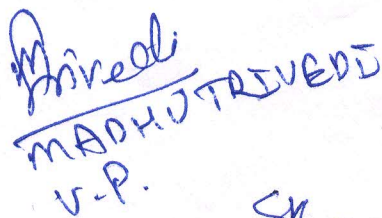 MTrivedi
MADHU TRIVEDI
V.P.